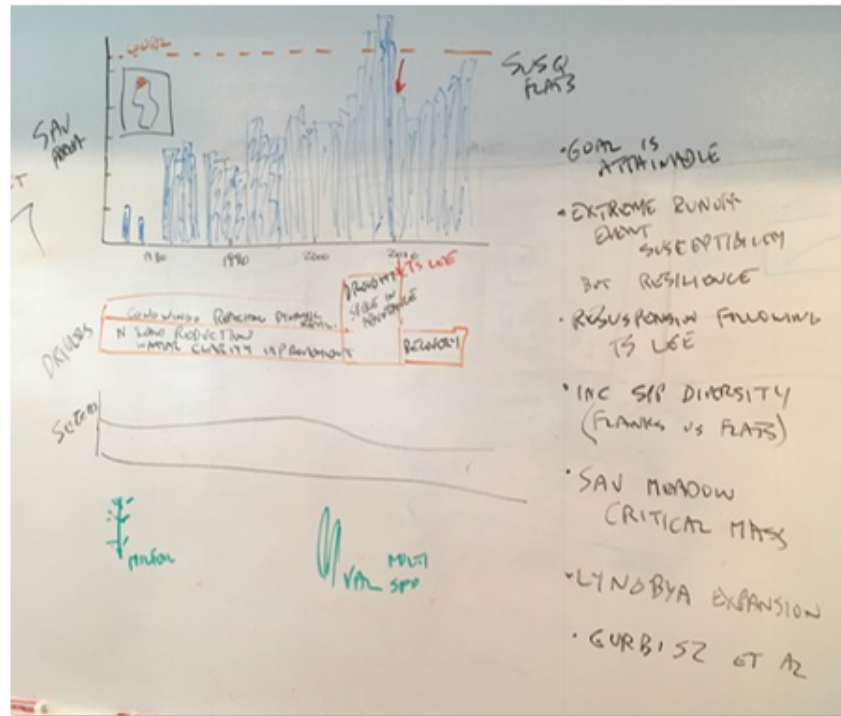 GOAL
SUSQ
FLATS
SAV
1980
1990
2000
2010
TS LEE
DRIVERS
CONOWINGO
N LOAD REDUCTION
WATER CLARITY IMPROVEMENT
DROUGHT
RECOVERY
MILFOIL
VAL
MULTI
SPP
• GOAL IS
ATTAINABLE
• EXTREME RUNOFF
EVENT
SUSCEPTIBILITY
BUT RESILIENCE
• RESUSPENSION FOLLOWING
TS LEE
• INC SPP DIVERSITY
(FLANKS VS FLATS)
• SAV MEADOW
CRITICAL MASS
• LYNGBYA EXPANSION
• GURBISZ ET AL